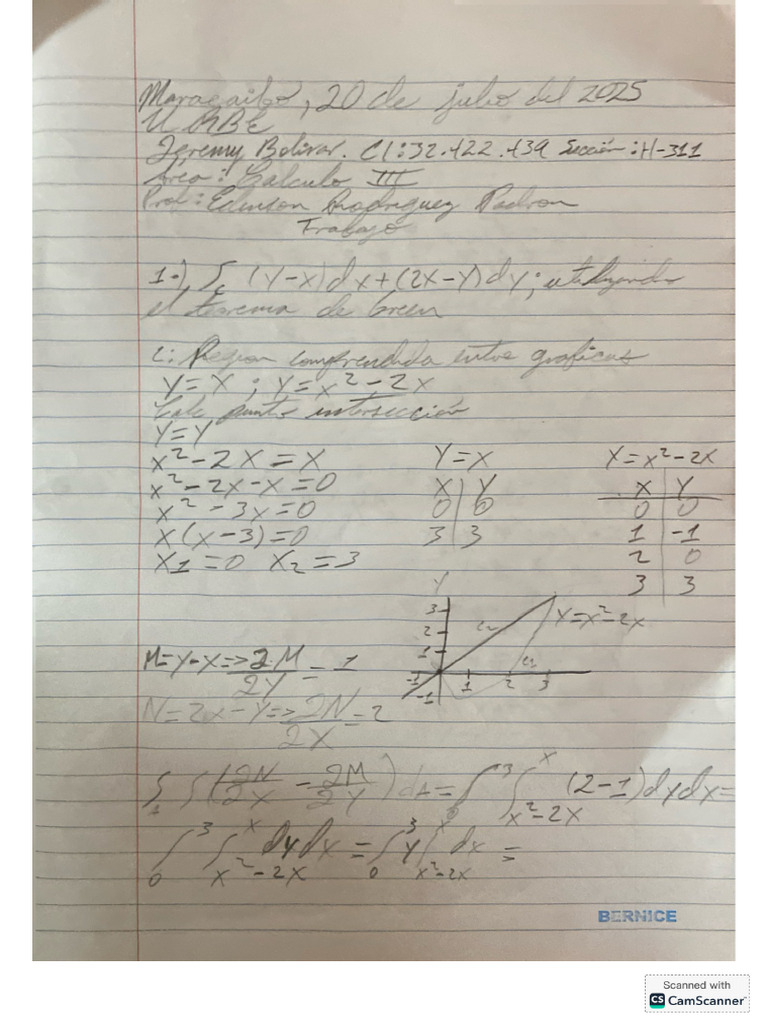 Maracaibo, 20 de julio del 2025
URBE
Jeremy Bolivar. CI:32.422.439 Sección:H-311
Area: Calculo III
Prof: Edinson Rodriguez Padron
Trabajo
1-) ∫c (Y-X)dx+(2X-Y)dy; utilizando
el teorema de Green
C: Region comprendida entre graficas
Y=X ; Y=x²-2x
Calc puntos intersección
Y=Y
x²-2x=x
x²-2x-x=0
x²-3x=0
x(x-3)=0
x1=0 x2=3
Y=X
X Y
0 0
3 3
Y=x²-2x
X Y
0 0
1 -1
2 0
3 3
Y
3
2
1
-1
-1
1 2 3
Y=x²-2x
M=Y-X=>2M/2Y=1
N=2x-Y=>2N/2X=2
∫∫(2N/2X-2M/2Y)dA=∫0 3 ∫x²-2x x (2-1)dydx=
∫0 3 ∫x²-2x x dydx=∫0 3 y|x²-2x x dx=
BERNICE
Scanned with
CS CamScanner